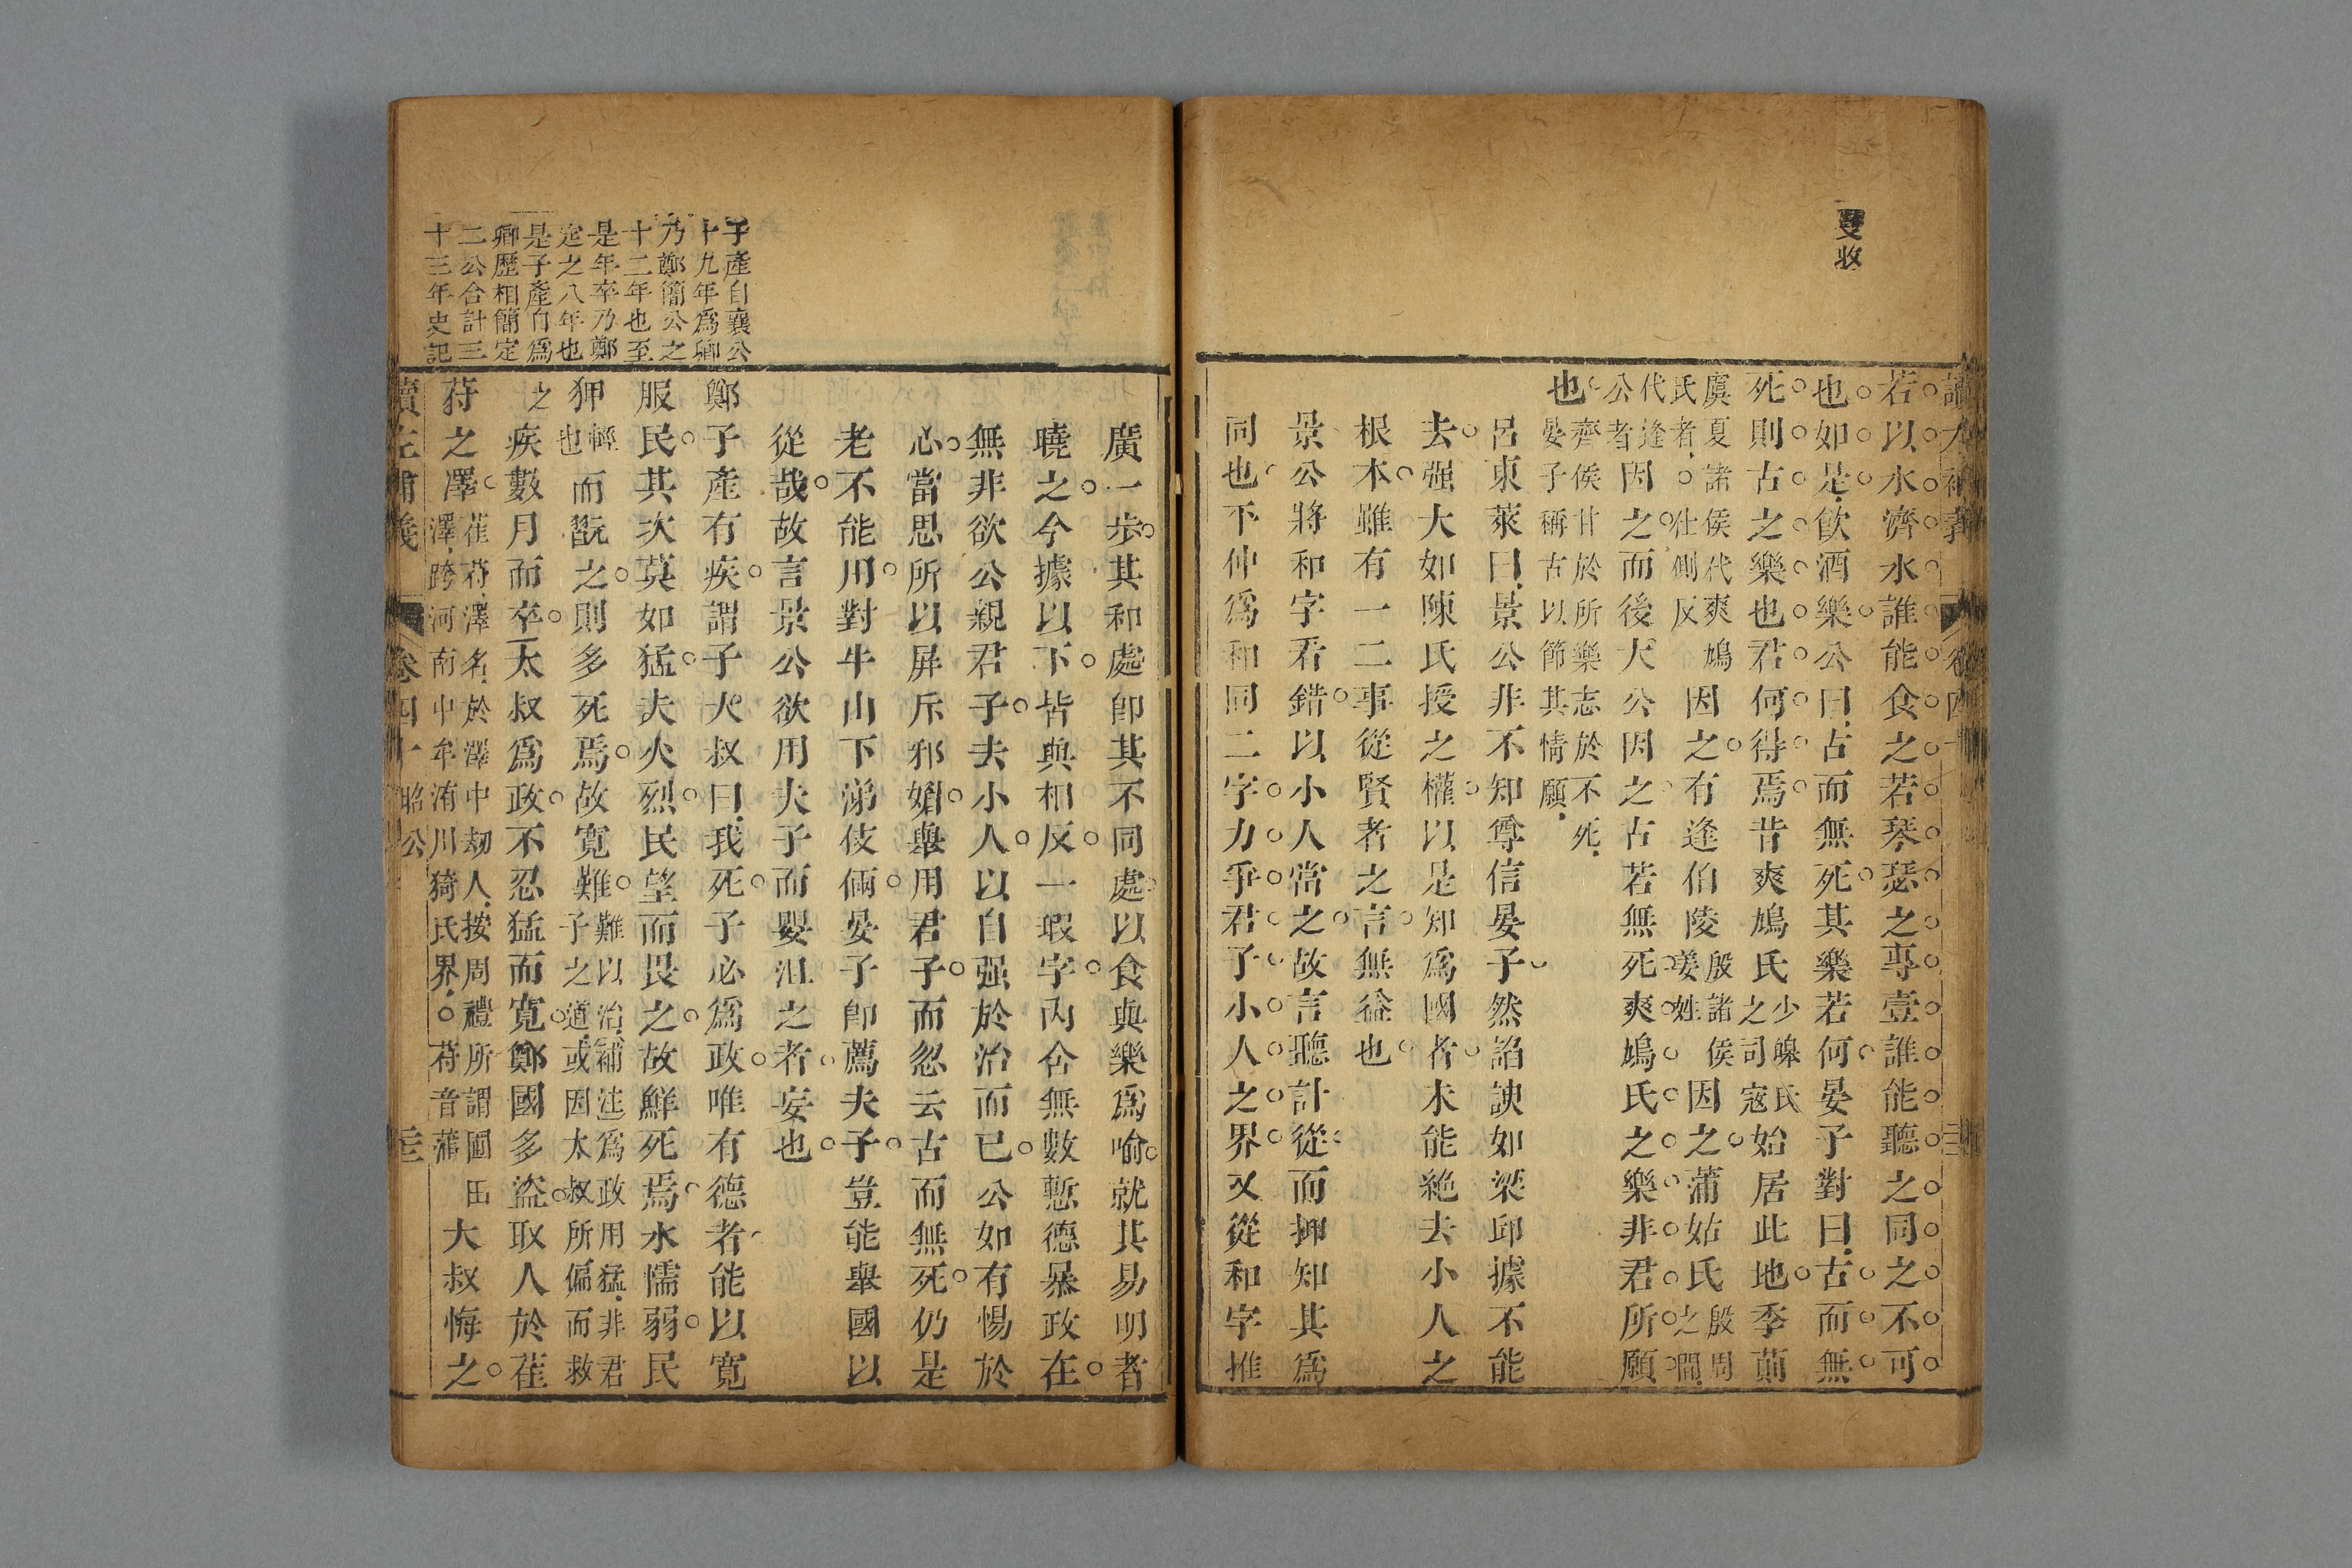 雙收
若以水濟水誰能食之若琴瑟之專壹誰能聽之同之不可
也如是飲酒樂公曰古而無死其樂若何晏子對曰古而無
死則古之樂也君何得焉昔爽鳩氏少皞氏之司寇始居此地季萴
虞夏諸侯代爽鳩氏者○仕側反因之有逢伯陵殷諸侯姜姓因之蒲姑氏殷周之間
代逢公者因之而後大公因之古若無死爽鳩氏之樂非君所願
也齊侯甘於所樂志於不死晏子稱古以節其情願
呂東萊曰景公非不知尊信晏子然諂諛如梁邱據不能
去强大如陳氏授之權以是知為國者未能絶去小人之
根本雖有一二事從賢者之言無益也
景公將和字看錯以小人當之故言聽計從而抑知其為
同也下仲為和同二字力爭君子小人之界又從和字推
廣一步其和處卽其不同處以食與樂為喻就其易明者
曉之今據以下皆與相反一瑕字內含無數慙德暴政在
無非欲公親君子去小人以自强於治而已公如有惕於
心當思所以屏斥邪媚舉用君子而忽云古而無死仍是
老不能用對牛山下涕伎倆晏子卽薦夫子豈能舉國以
從哉故言景公欲用夫子而嬰沮之者妄也
子產自襄公
十九年為卿
乃鄭簡公之
十二年也至
是年卒乃鄭
定之八年也
是子產自為
卿歷相簡定
二公合計三
十三年史記
鄭子產有疾謂子大叔曰我死子必為政唯有德者能以寛
服民其次莫如猛夫火烈民望而畏之故鮮死焉水懦弱民
狎輕也而翫之則多死焉故寛難難以治補注為政用猛非君子之道或因太叔所偏而救
之疾數月而卒大叔為政不忍猛而寛鄭國多盜取人於萑
苻之澤萑苻澤名於澤中劫人按周禮所謂圃田澤跨河南中牟洧川猗氏界○苻音蒲大叔悔之
讀左補義
卷四十
昭公